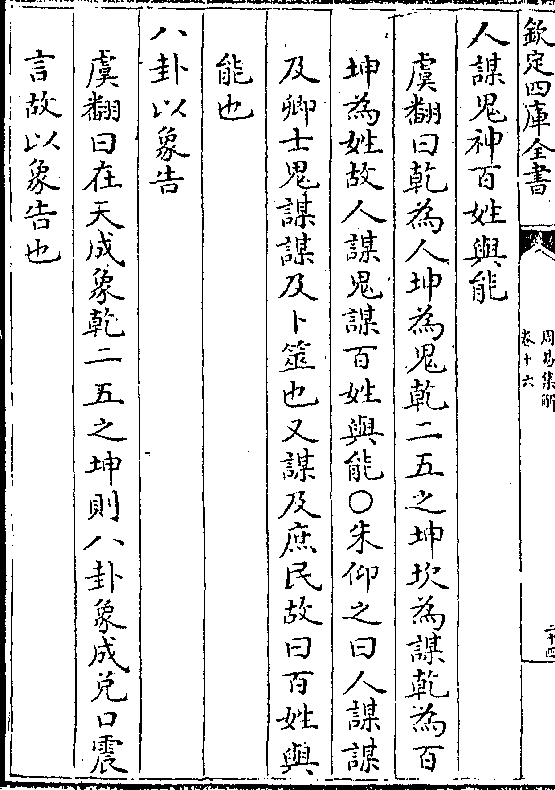 欽定四庫全書
周易集解
卷十六
二十四
人謀鬼神百姓與能
虞翻曰乾為人坤為鬼乾二五之坤坎為謀乾為百
坤為姓故人謀鬼謀百姓與能○朱仰之曰人謀謀
及卿士鬼謀謀及卜筮也又謀及庶民故曰百姓與
能也
八卦以象告
虞翻曰在天成象乾二五之坤則八卦象成兌口震
言故以象告也